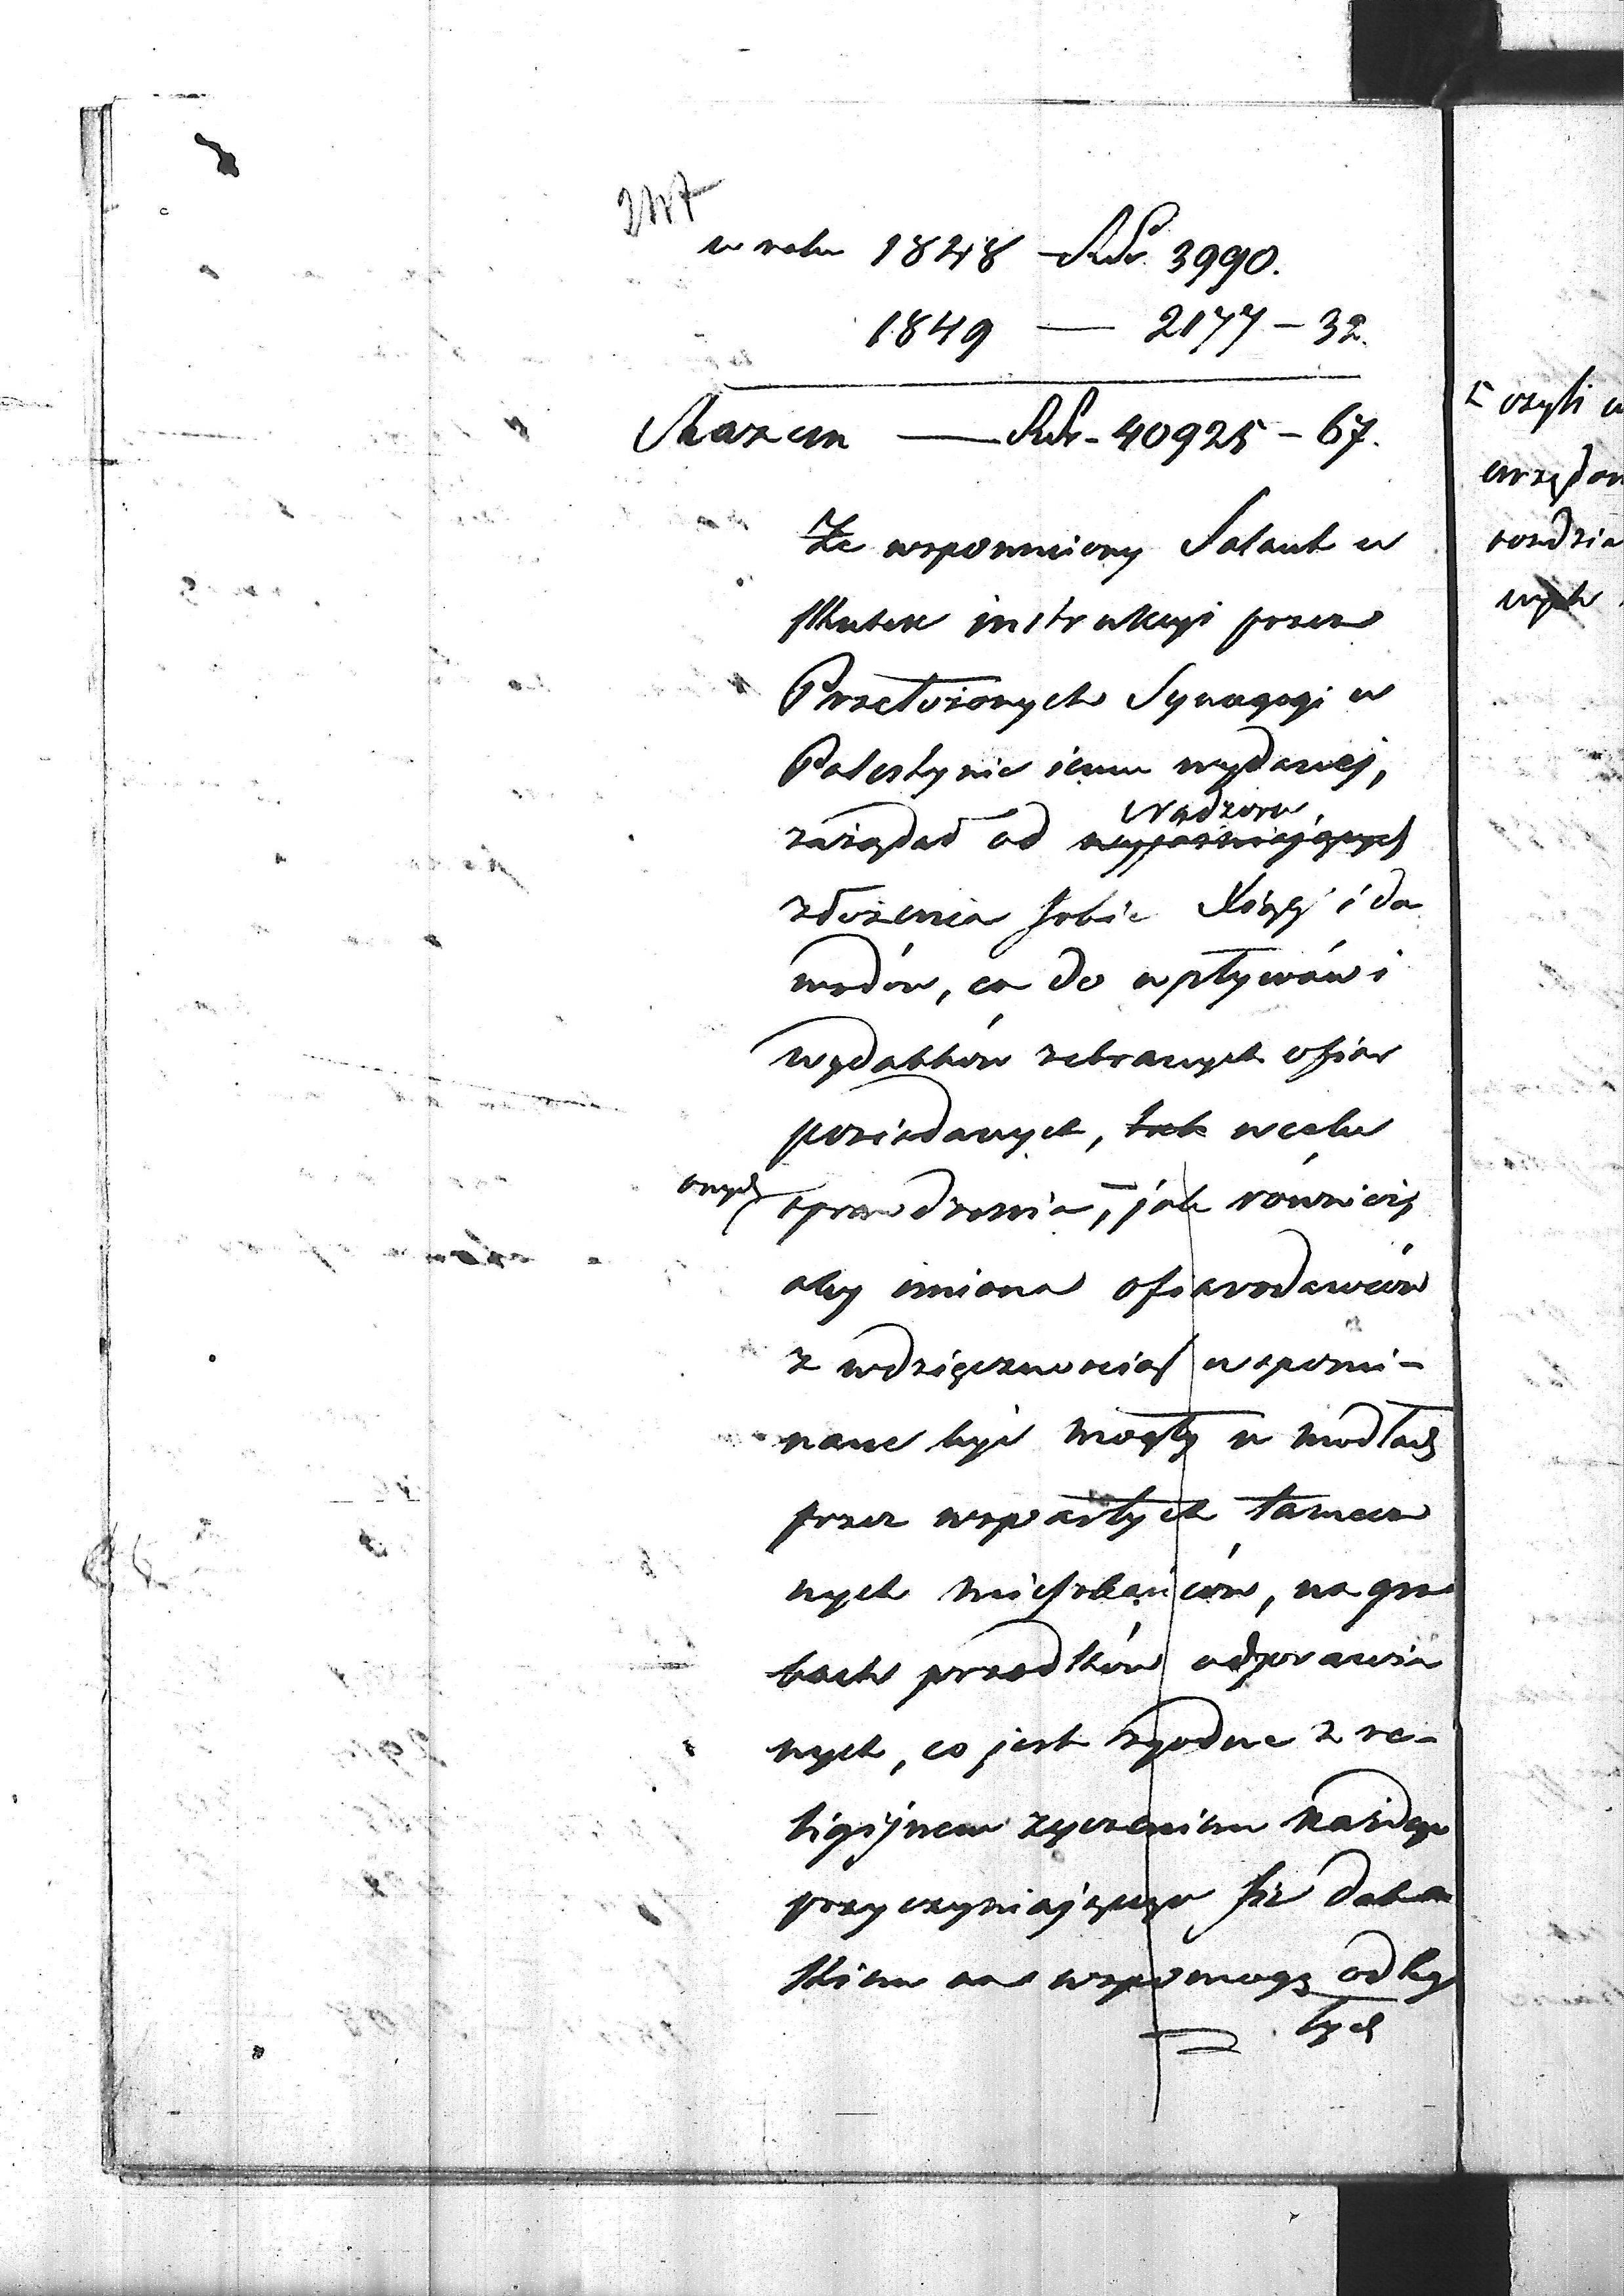 247
w roku 1848 RSr. 3990.
1849 — 2177 – 32.
Razem — RSr. 40925 – 67.
Że wspomniony Salant w
skutek instrukcyi przez
Przełożonych Synagogi w
Palestynie iemu wydanej,
Nadzoru
zażądał od
złożenia sobie Xiąg i do
wodów, co do wpływów i
wydatków zebranych ofiar
posiadanych, tak w celu
onych
sprawdzenia, jak również
aby imiona ofiarodawców
z wdzięcznością wspomi-
nane być mogły w modłach
przez wspartych tamecz
nych mieszkańców, na gro
bach przodków odprawia
nych, co jest zgodne z re-
ligijnem życzeniem każdego
przyczyniającego się datkiem
na wspomogę
łych
czyli w
urzędow
rozdzia
nych